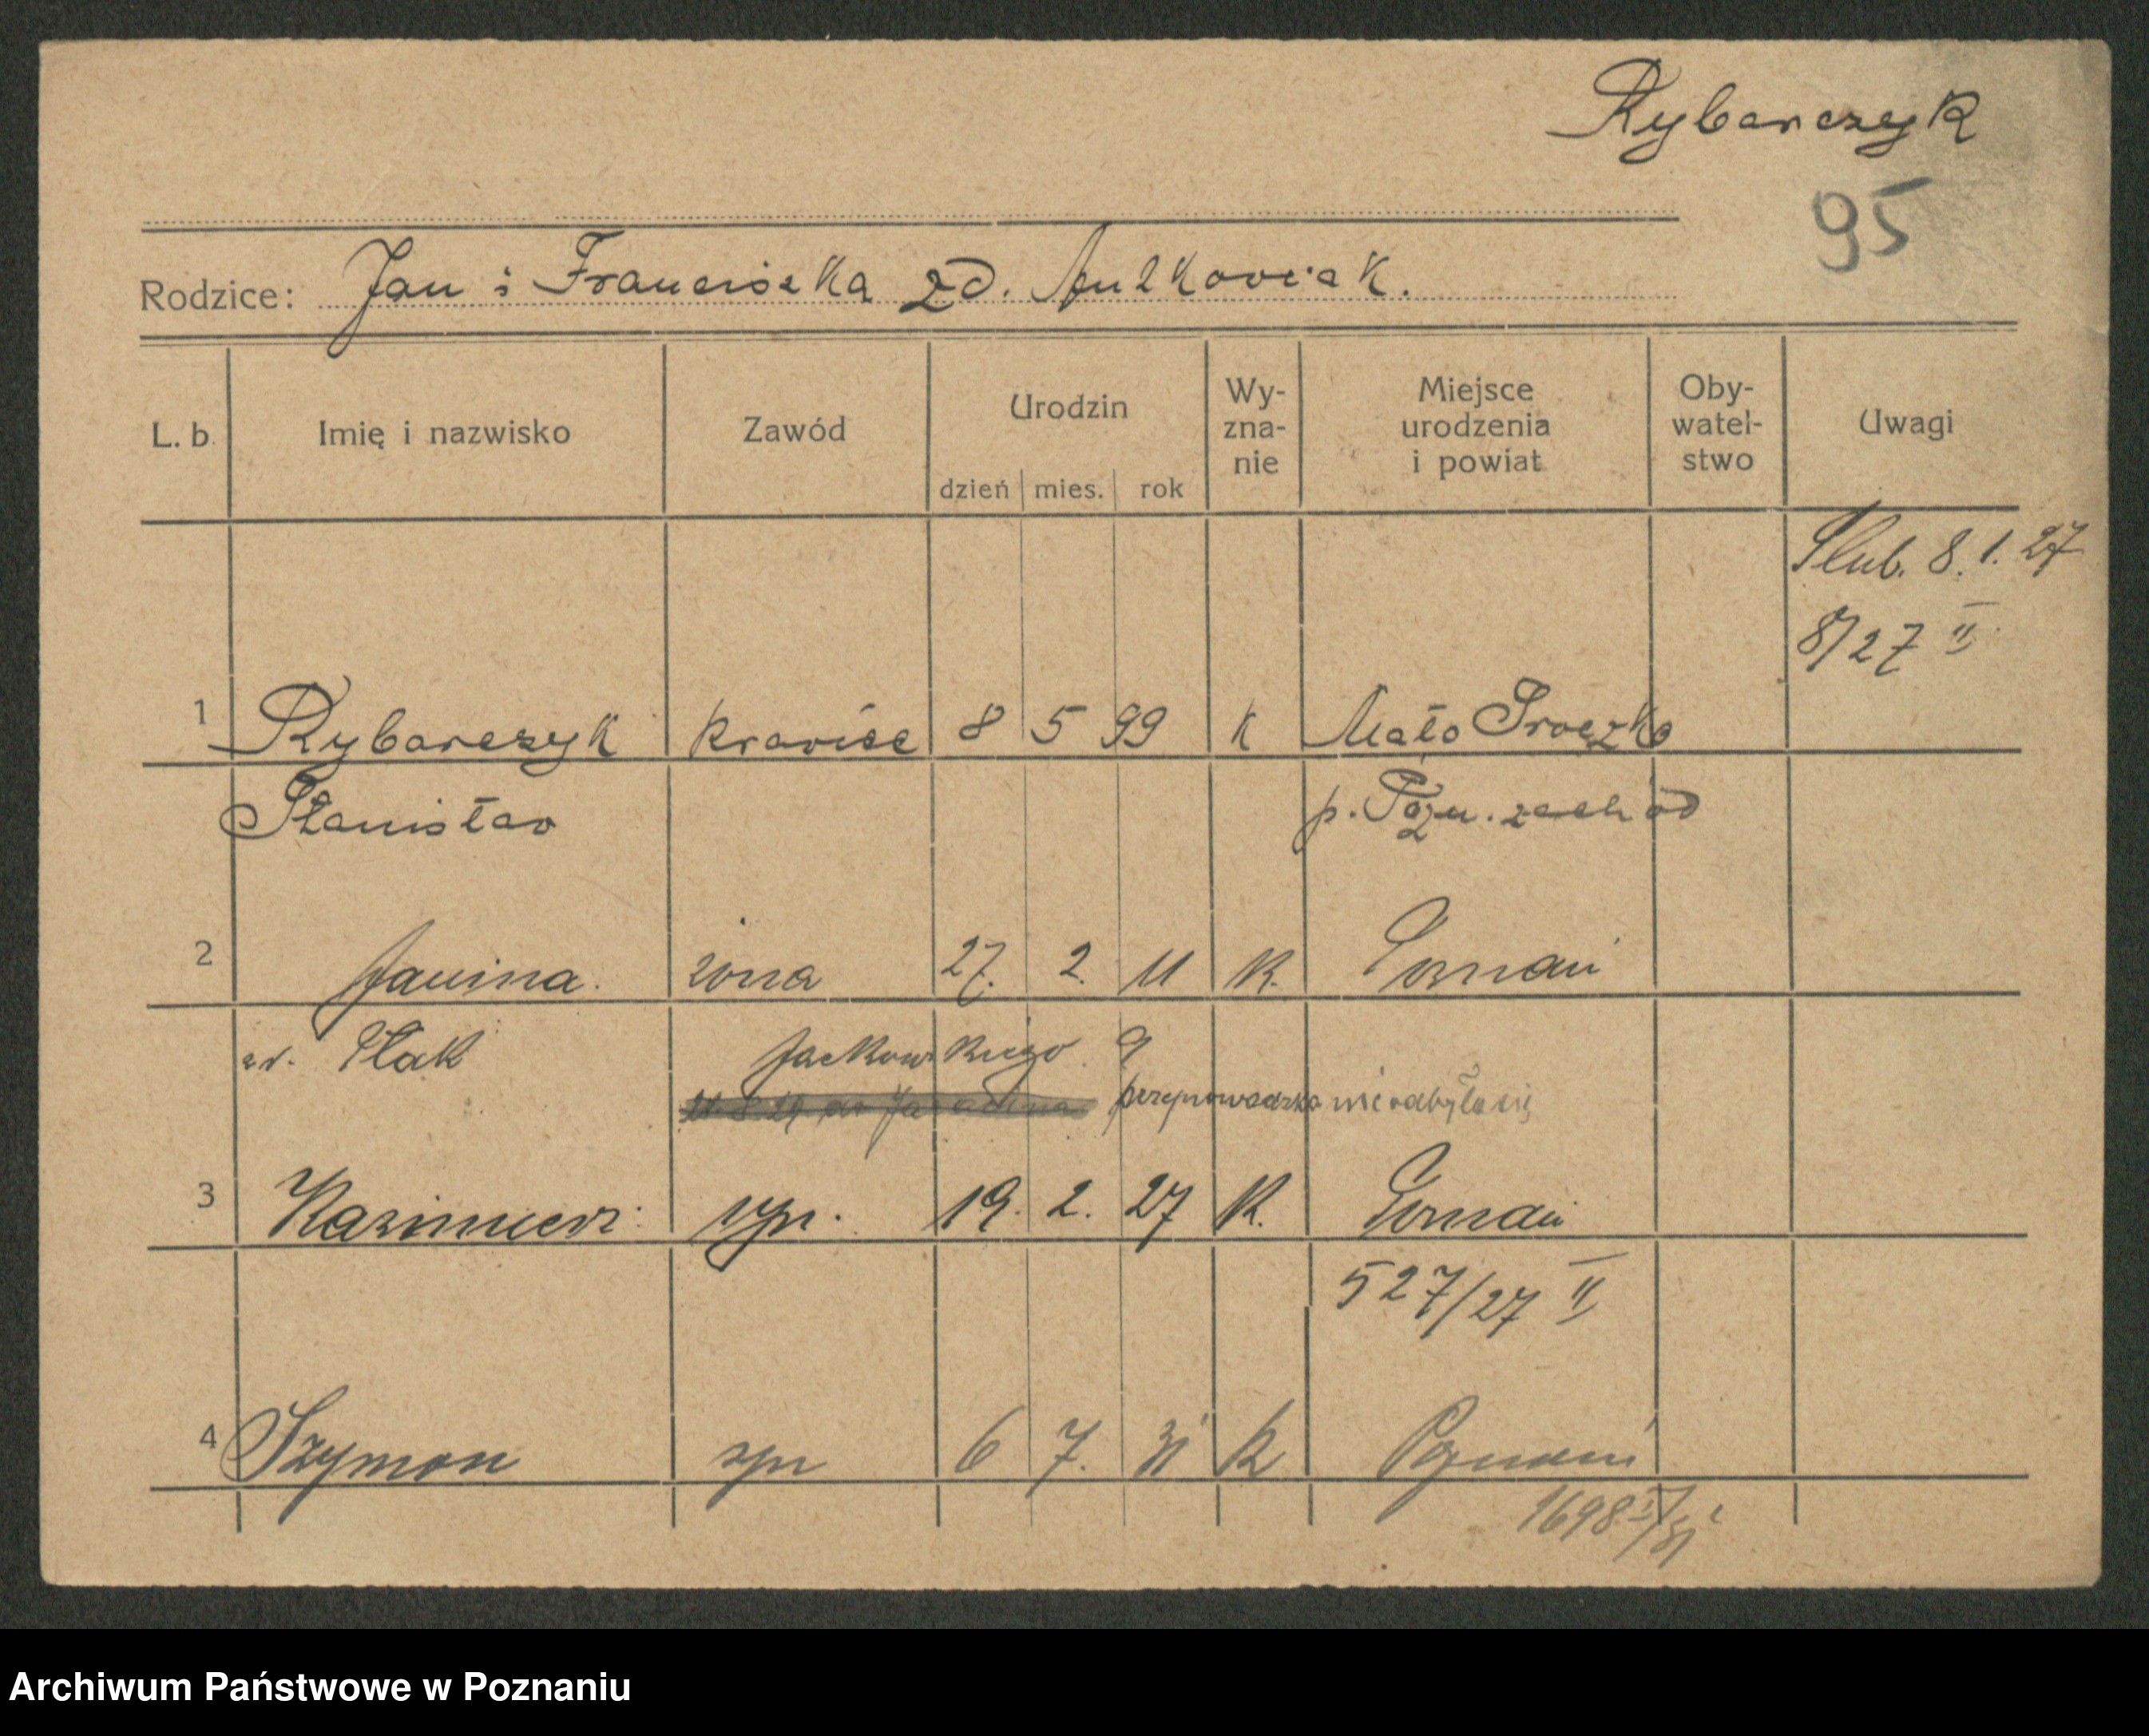 Rybarczyk
95
Rodzice: Jan i Franciszka zd. Antkowiak.
L. b. Imię i nazwisko Zawód Urodzin dzień mies. rok Wy-zna-nie Miejsce urodzenia i powiat Oby-watel-stwo Uwagi
Slub. 8. 1. 27
8/27 II
1 Rybarczyk krawiec 8 5 99 K
Stanisław p. Pozn. zachód
2 Janina. żona 27. 2. 11 K. Poznań
zd. Ptak Jackowskiego 9
przeprowadzka nie odbyła się
3 Kazimierz syn. 19. 2. 27 K. Poznań
527/27 II
4 Szymon syn 6 7. 31 K Poznań
1698
Archiwum Państwowe w Poznaniu